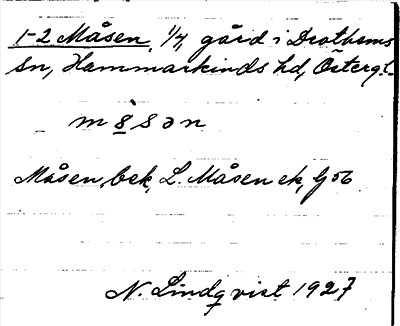 1-2 Måsen, 1/4, gård i Drothems
sn, Hammarkinds hd, Östergl.
m 8̲ s ə n
Måsen, bek, L. Måsen ek, Gob
N. Lindqvist 1927